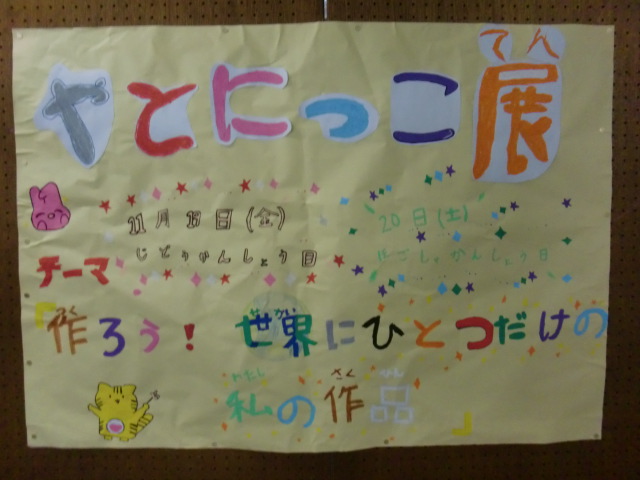 てん
やとにっこ展
11月19日(金) 20日(土)
じどうかんしょう日 ほごしゃかんしょう日
テーマ
つく せかい
『作ろう! 世界にひとつだけの
わたし さく ひん
私の作品』